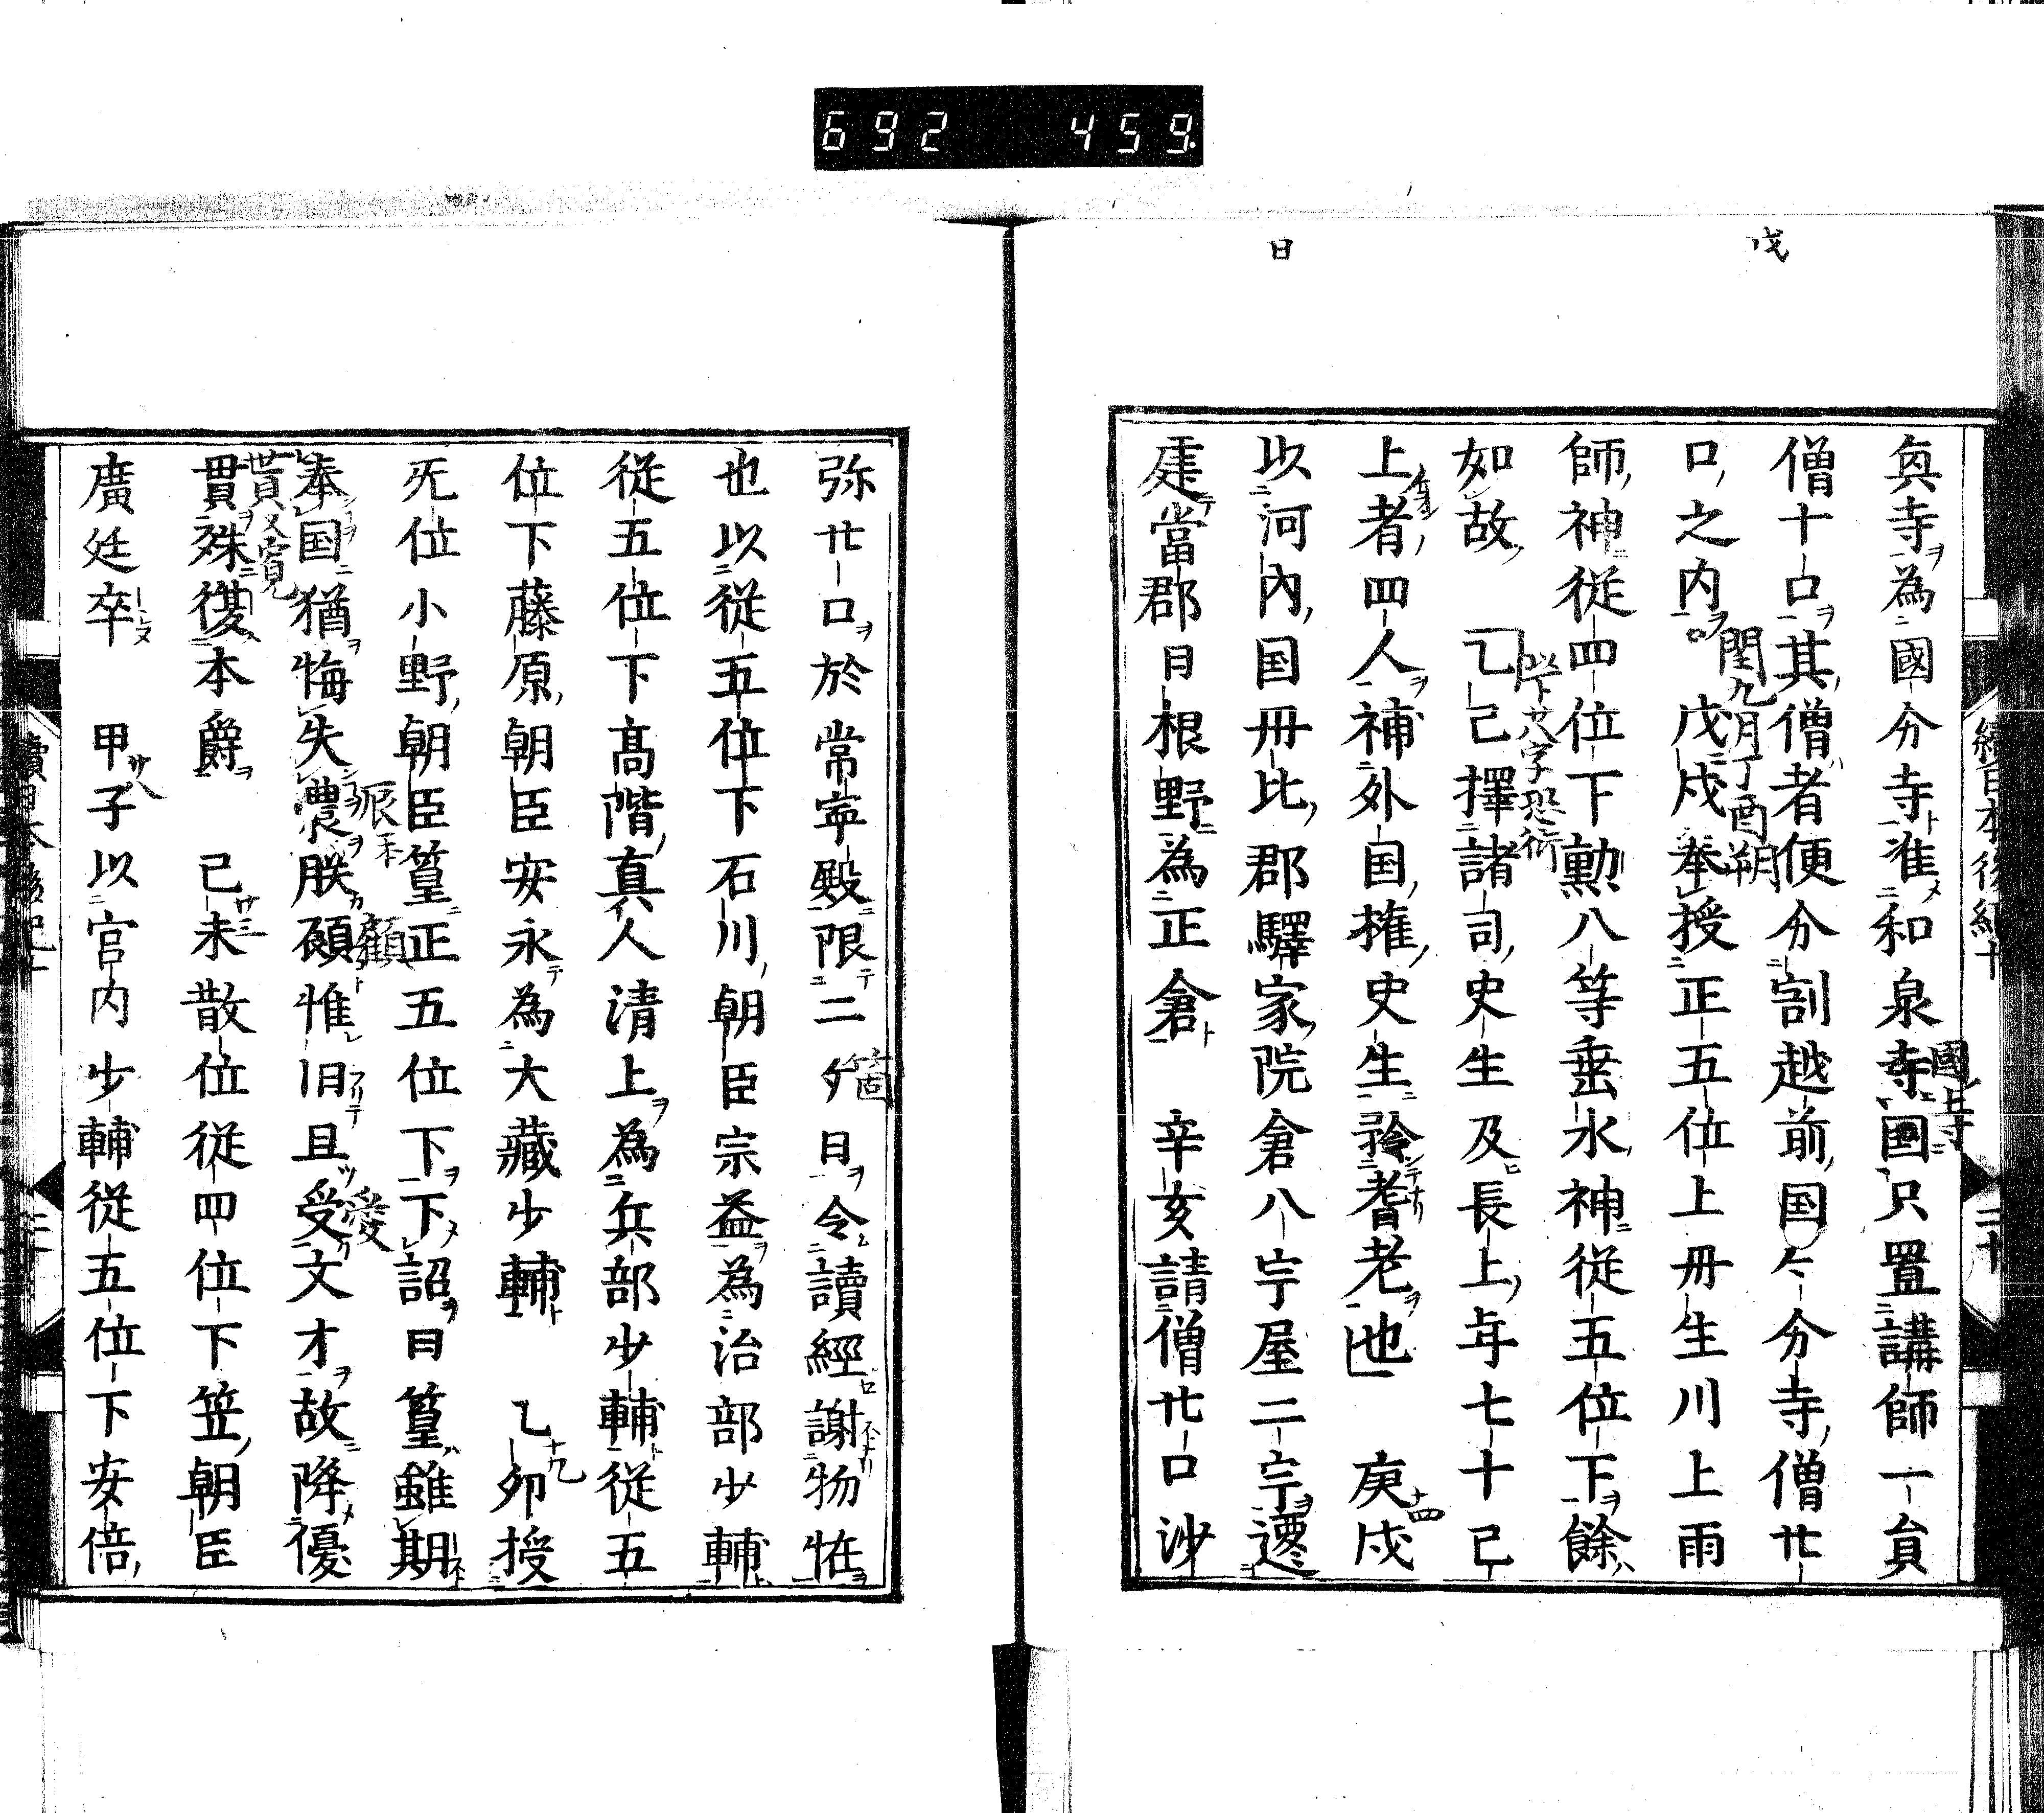 692 459
戊
日
寘寺為國分寺准和泉寺國只置講師一負
僧十口其僧者便分割越前国々分寺僧廿
口之内 戊戍奉授正五位上丹生川上雨
師神從四位下勳八等垂水神從五位下餘
如故 乙己擇諸司史生及長上年七十已
上者四人補外国権史生矜耆老也 庚戍
以河內国丹比郡驛家院倉八宇屋二宇遷
建當郡日根野為正倉 辛亥請僧廿口沙
弥廿口於常寧殿限二夕日令讀經謝物恠
也以從五位下石川朝臣宗益為治部少輔
從五位下髙階真人清上為兵部少輔從五
位下藤原朝臣安永為大藏少輔 乙夘授
旡位小野朝臣篁正五位下下詔曰篁雖期
奉国猶悔失濃朕碩惟旧且受文才故降優
貫殊復本爵 己未散位從四位下笠朝臣
廣廷卒 甲子以宫内少輔從五位下安倍
國上寺
閏九月丁酉朔
以下廿八字恐衍
十四
箇
十九
派
顧
愛
貰又寛
廿三
廿八